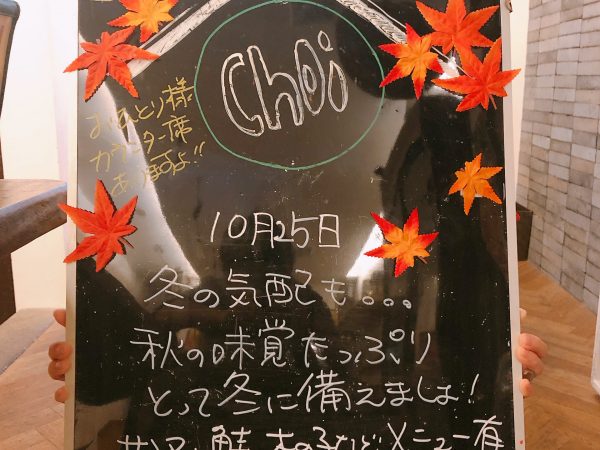 choi
おひとり様
カウンター席
あります!!
10月25日
冬の気配も。。。
秋の味覚たっぷり
とって冬に備えましょ!
サンマ、鮭、きのこなど、メニュー有